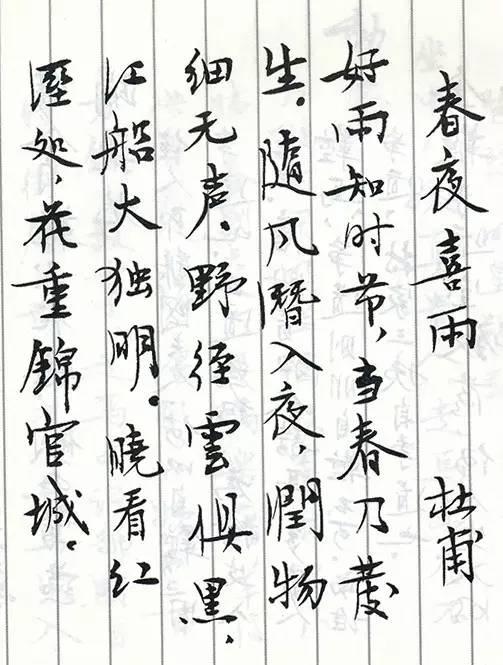 春夜喜雨 杜甫
好雨知时节,当春乃發
生。随风潛入夜,潤物
细无声。野径雲俱黑、
江船火独明。曉看红
溼处,花重錦官城。